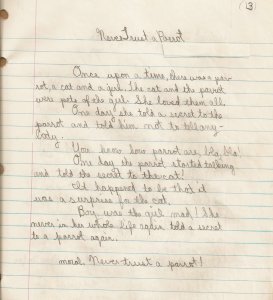 (3)
Never Trust a Parrot
Once upon a time, there was a par
rot, a cat and a girl. The cat and the parrot
were pets of the girl. She loved them all.
One day she told a secret to the
parrot and told him not to tell any-
body.
You know how parrot are, bla, bla!
One day the parrot started talking
and told the secret to the cat!
It happened to be that it
was a surprise for the cat.
Boy, was the girl mad! She
never in her whole life again told a secret
to a parrot again.
moral, Never trust a parrot!